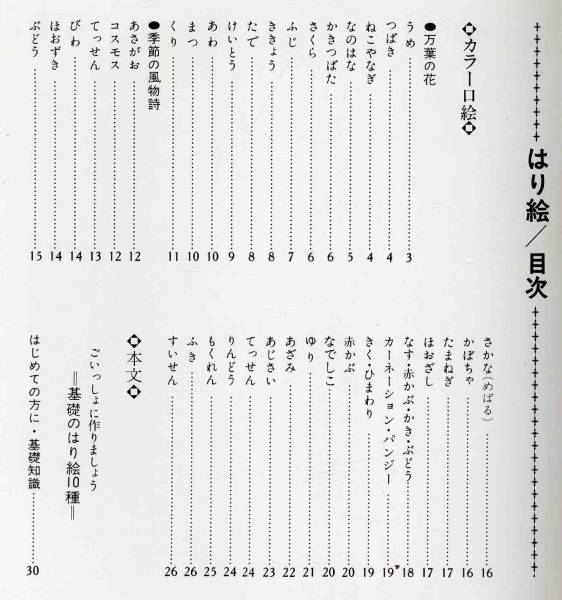 はり絵／目次
カラー口絵
●万葉の花
うめ……3
つばき……4
ねこやなぎ……4
なのはな……5
かきつばた……6
さくら……6
ふじ……7
ききょう……8
たで……8
けいとう……9
あわ……10
まつ……10
くり……11
●季節の風物詩
あさがお……12
コスモス……12
てっせん……13
びわ……14
ほおずき……14
ぶどう……15
さかな(めばる)……16
かぼちゃ……16
たまねぎ……17
ほおざし……17
なす・赤かぶ・かき・ぶどう……18
カーネーション・パンジー……19
きく・ひまわり……19
赤かぶ……20
なでしこ……20
ゆり……21
あざみ……22
あじさい……23
てっせん……24
りんどう……24
もくれん……25
ふき……26
すいせん……26
本文
ごいっしょに作りましょう
＝基礎のはり絵10種＝
はじめての方に・基礎知識……30